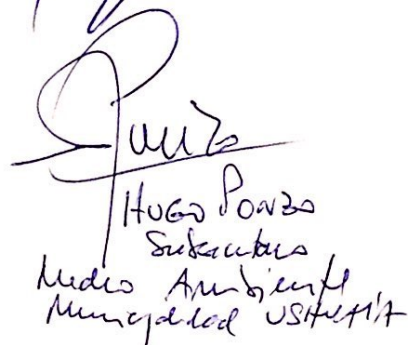 Ponzo
HUGO PONZO
Subsecretario
Medio Ambiente
Municipalidad USHUAIA